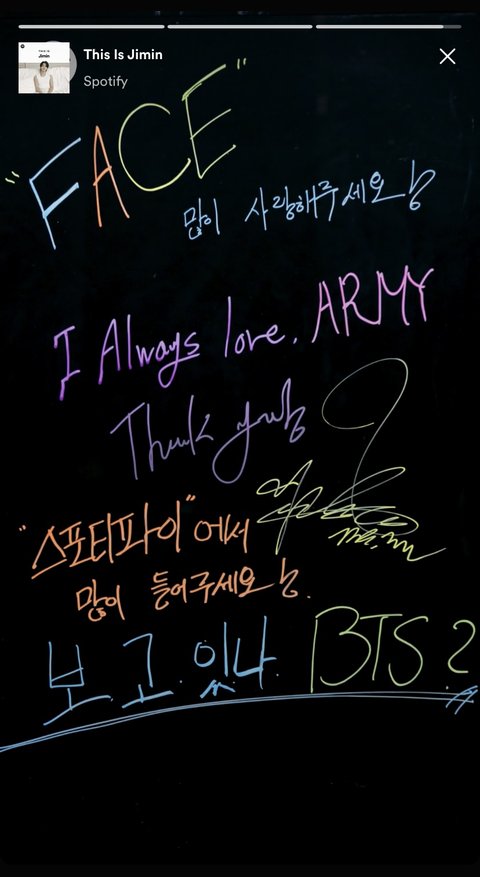 This Is Jimin
Spotify
"FACE"
많이 사랑해주세요
I Always love. ARMY
Thank you
"스포티파이"에서
많이 들어주세요
보고 있나 BTS?